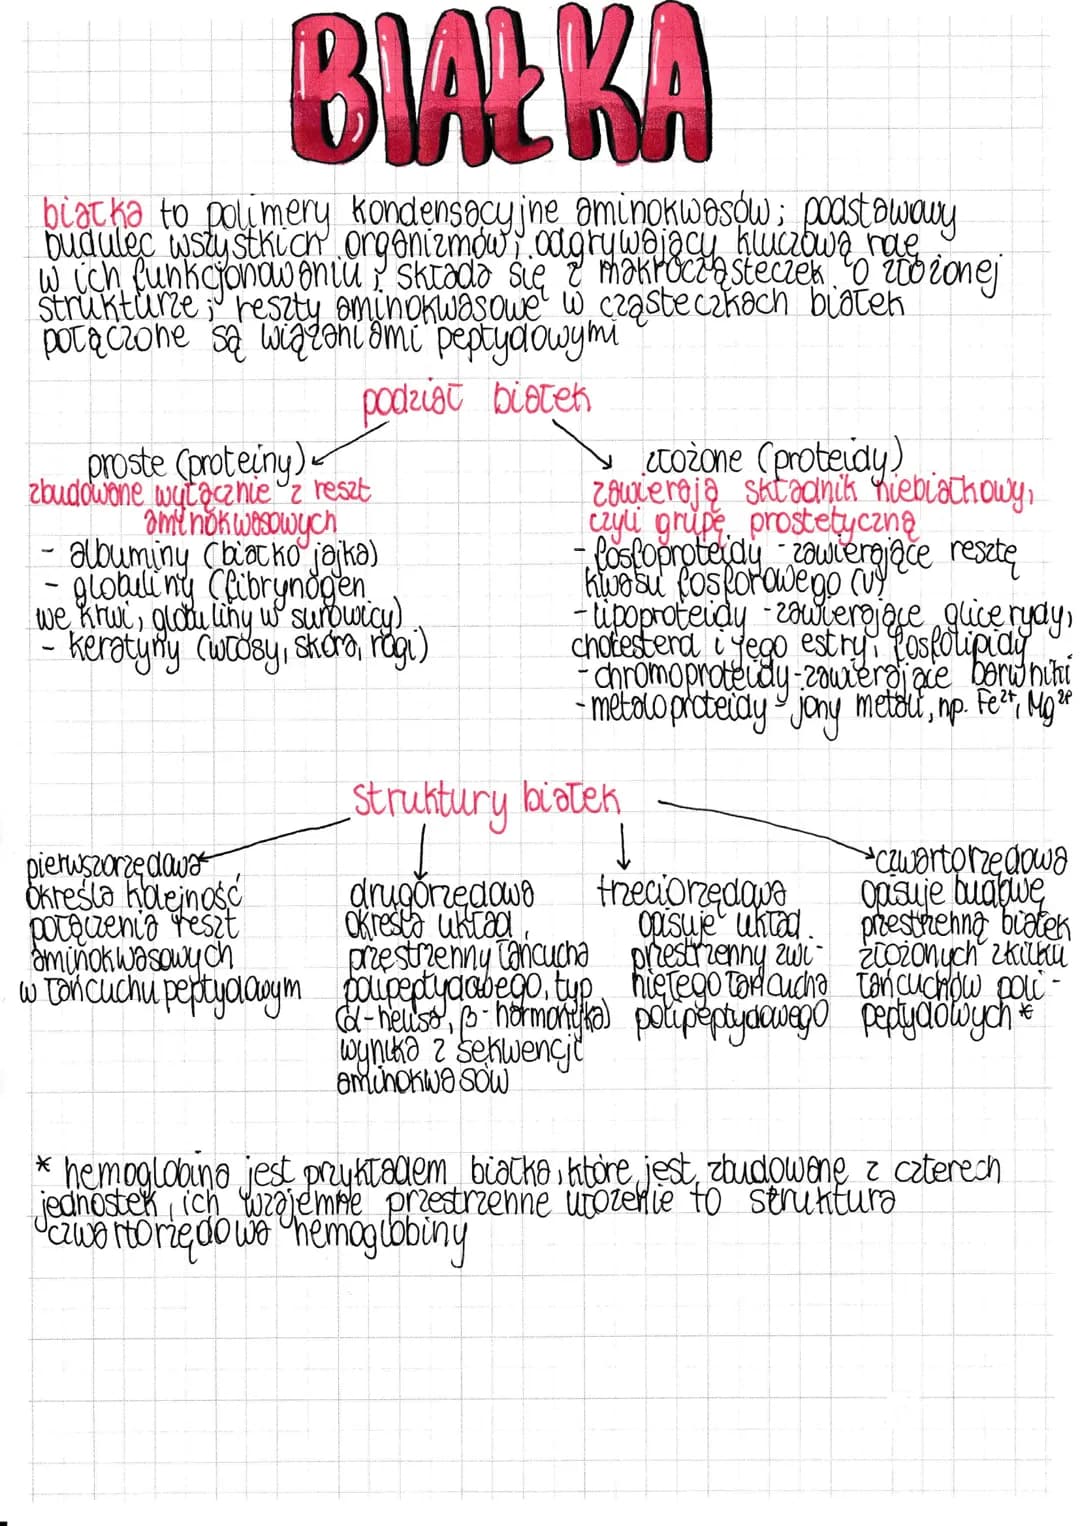 BIAŁKA
białka to polimery kondensacyjne aminokwasów; podstawowy
budulec wszystkich organizmów; odgrywający kluczową rolę
w ich funkcjonowaniu; składa się z makrocząsteczek o złożonej
strukturze; reszty aminokwasowe w cząsteczkach białek
połączone są wiązaniami peptydowymi
podział białek
proste (proteiny)
zbudowane wyłącznie z reszt
aminokwasowych
- albuminy (białko jajka)
- globuliny (fibrynogen
we krwi, globuliny w surowicy)
- keratyny (włosy, skóra, rogi)
złożone (proteidy)
zawierają składnik niebiałkowy,
czyli grupę prostetyczną
- fosfoproteidy - zawierające resztę
kwasu fosforowego (V)
- lipoproteidy - zawierające glicerydy,
cholesterol i jego estry, fosfolipidy
- chromoproteidy - zawierające barwniki
- metaloproteidy - jony metali, np. Fe²⁺, Mg²⁺
struktury białek
pierwszorzędowa
określa kolejność
połączenia reszt
aminokwasowych
w łańcuchu peptydowym
drugorzędowa
określa układ
przestrzenny łańcucha
polipeptydowego, typ
(α-helisa, β-harmonijka)
wynika z sekwencji
aminokwasów
trzeciorzędowa
opisuje układ
przestrzenny zwi-
niętego łańcucha
polipeptydowego
czwartorzędowa
opisuje budowę
przestrzenną białek
złożonych z kilku
łańcuchów poli-
peptydowych *
* hemoglobina jest przykładem białka, które jest zbudowane z czterech
jednostek, ich wzajemne przestrzenne ułożenie to struktura
czwartorzędowa hemoglobiny